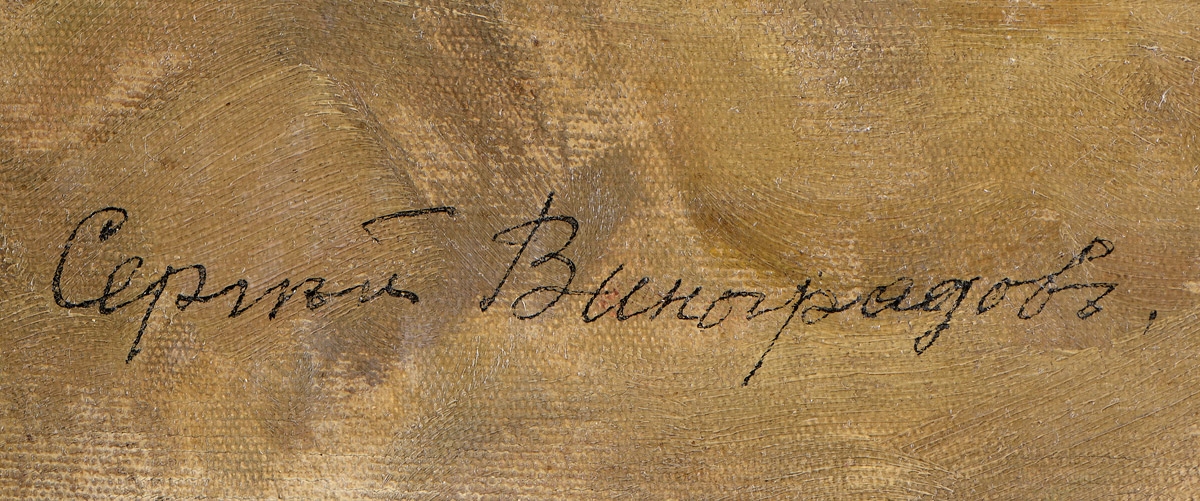 Сергѣй Виноградовъ.